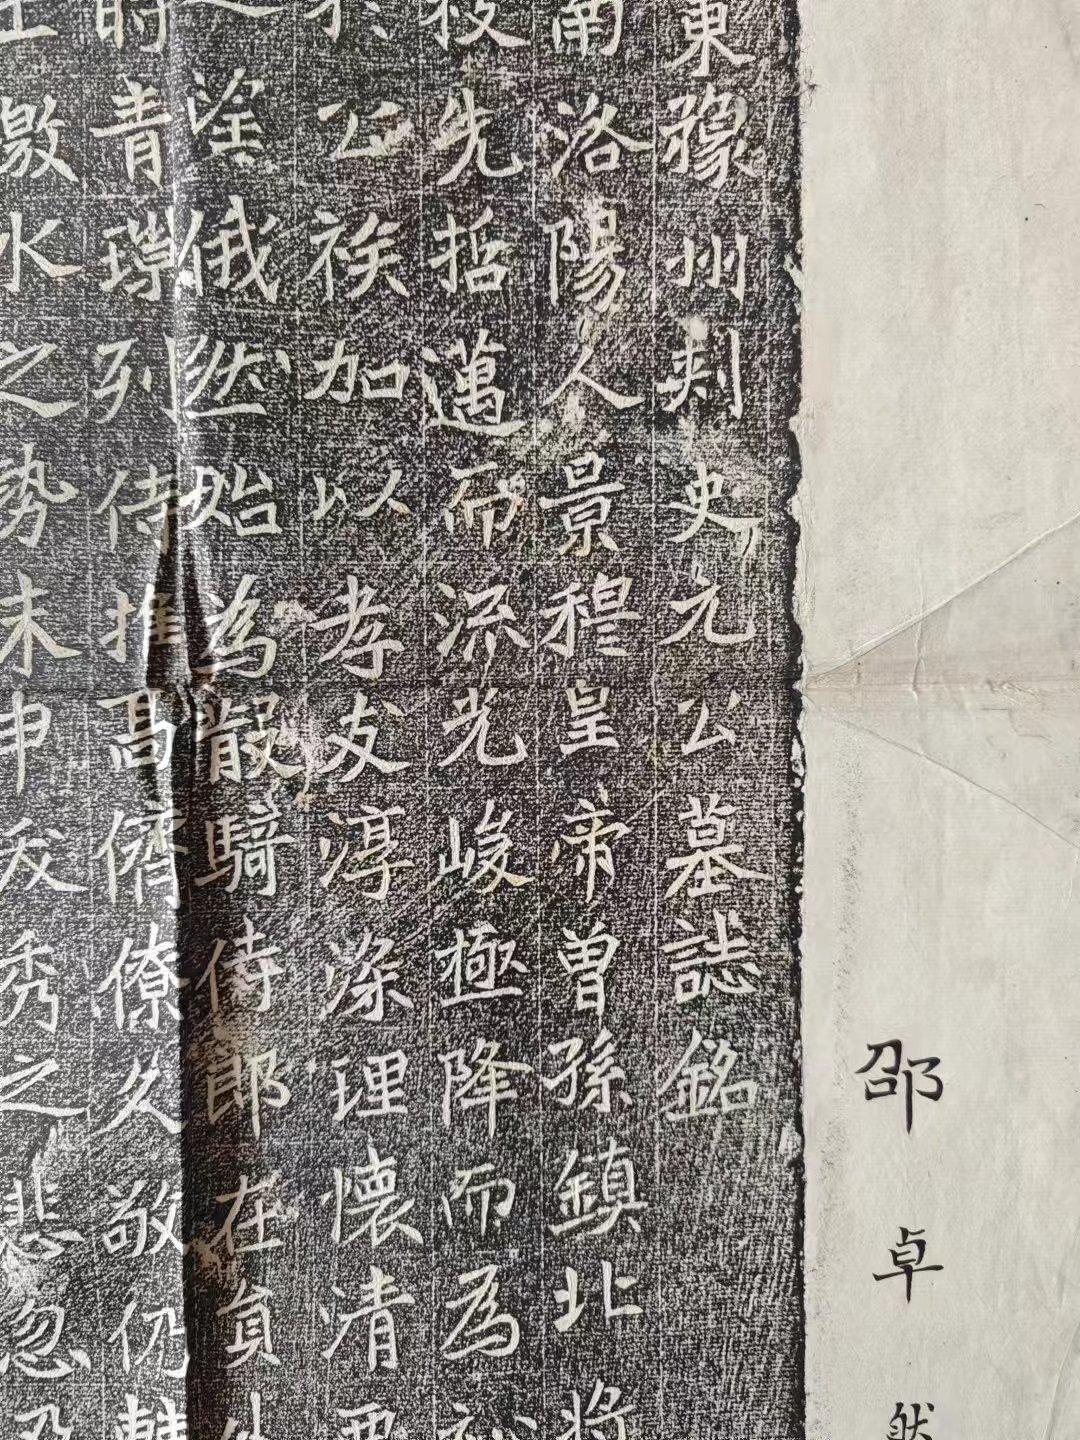 東豫州刺史元公墓誌銘
南洛陽人景穆皇帝曾孫鎮北將
先哲邁而流光峻極降而為
公族加以孝友淳深理懷清
塗俄然始為散騎侍郎在員外
時青璅列侍推高儕僚久敬仍
激水之勢未申茂秀之悲忽
邵卓然